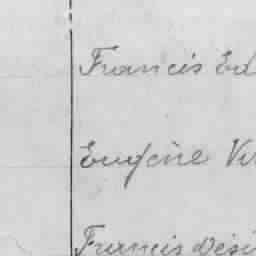 Francis Ed
Eugène Vi
Francis Dési